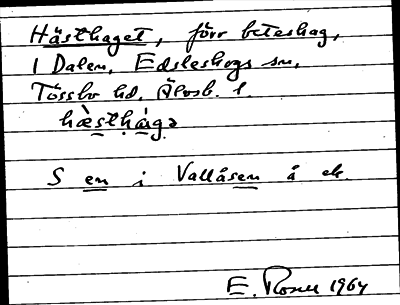 Hästhaget, förr beteshag,
1 Dalen, Edsleskogs sn,
Tössbo hd, Älvsb. l.
hæ̀stha̍gə
S en i Vallåsen å ek.
E. Rosen 1964